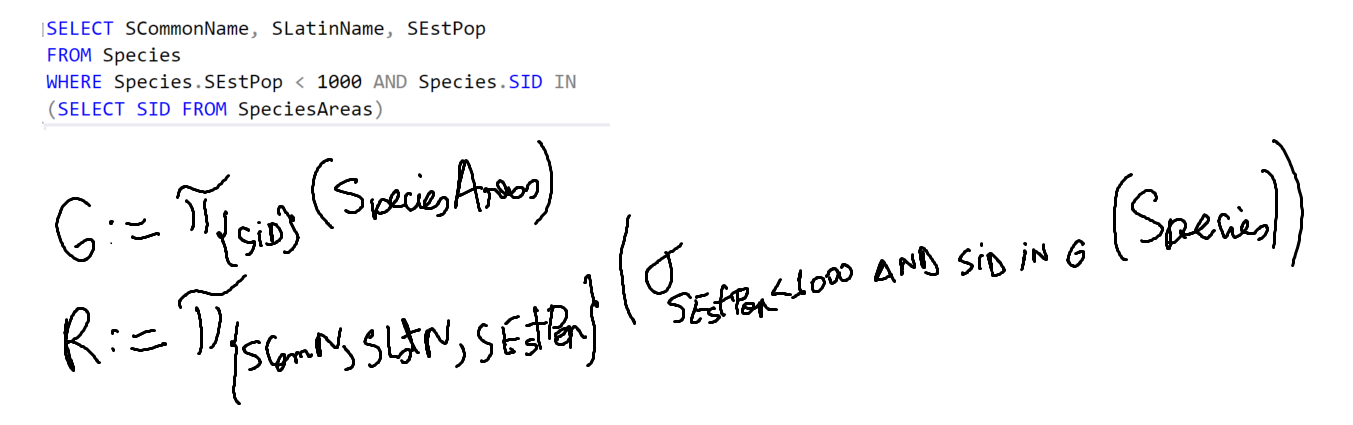 SELECT SCommonName, SLatinName, SEstPop
FROM Species
WHERE Species.SEstPop < 1000 AND Species.SID IN
(SELECT SID FROM SpeciesAreas)
G := π{SiD} (SpeciesAreas)
R := π{SComN, SLatN, SEstPop} (σ SEstPop<1000 AND SiD iN G (Species))